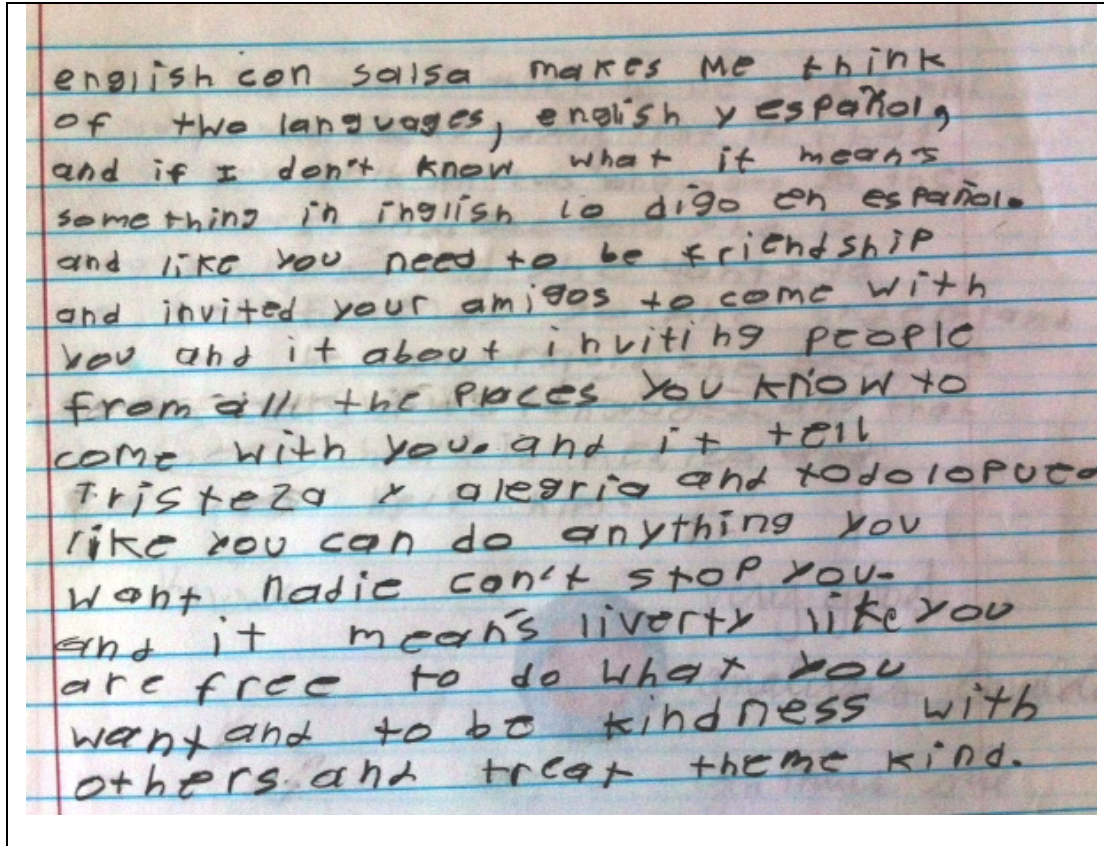 english con salsa makes Me think
of two languages, english y español,
and if I don't know what it mean's
something in inglish lo digo en español.
and like you need to be friendship
and invited your amigos to come with
you and it about inviting people
from all the places you know to
come with you. and it tell
Tristeza y alegria and todolopued
like you can do anything you
want nadie can't stop you.
and it mean's liverty like you
are free to do what you
want and to be kindness with
others. and treat theme kind.